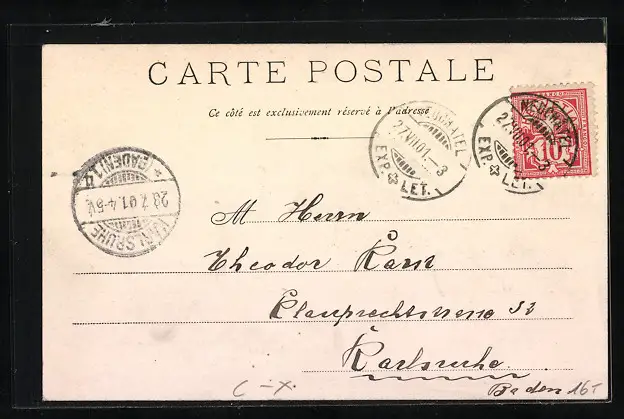 CARTE POSTALE
Ce côté est exclusivement réservé à l'adresse
NEUCHATEL
27.VII.01.-3
EXP. LET.
NEUCHATEL
27.VII.01.-3
EXP. LET.
10
KARLSRUHE
28.7.01.4-5N.
(BADEN) 1
M Herrn
Theodor
Clauprechtstrasse 33
Karlsruhe
Baden
16-